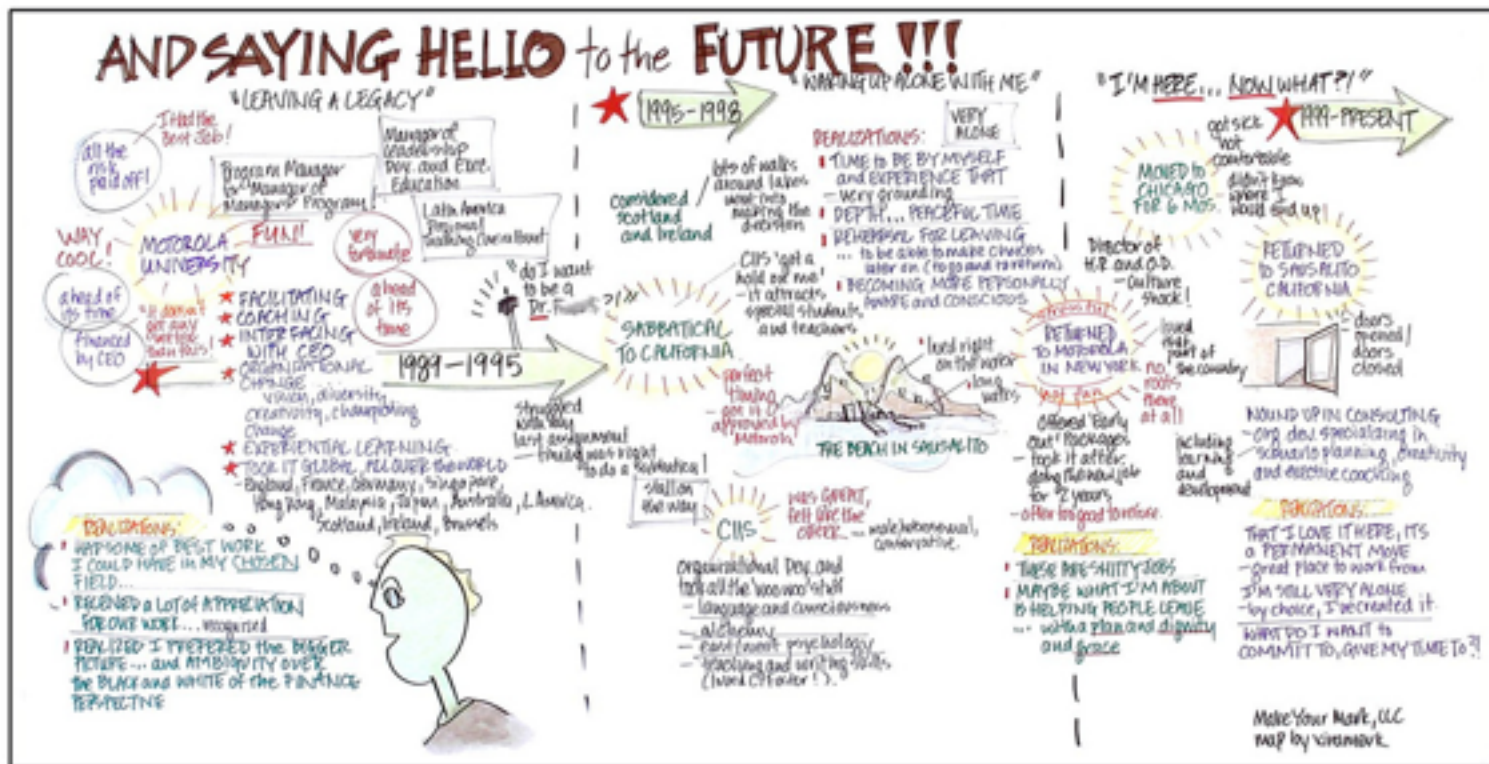 AND SAYING HELLO to the FUTURE !!!
"LEAVING A LEGACY"
I Had the
Best Job!
all the
risk
paid off!
Program Manager
for "Manager of
Managers" Program
Manager of
Leadership
Dev. and Exec.
Education
Latin America
Regional
WAY
COOL!
MOTOROLA
UNIVERSITY
FUN!!
very
fortunate
ahead of
its time
ahead
of its
time
financed
by CEO
"it doesn't
get any
better
than this!
FACILITATING
COACHING
INTERFACING
WITH CEO
ORGANIZATIONAL
CHANGE
vision, diversity,
creativity, championing
change
EXPERIENTIAL LEARNING
TOOK IT GLOBAL, ALL OVER THE WORLD
- England, France, Germany, Singapore,
Hong Kong, Malaysia, Japan, Australia, L. America.
Scotland, Ireland, Brussels
1989-1995
"do I want
to be a
Dr.
?!"
struggled
with my
last assignment
- timing was right
to do a sabbatical!
REALIZATIONS:
HAD SOME OF BEST WORK
I COULD HAVE IN MY CHOSEN
FIELD...
RECEIVED A LOT OF APPRECIATION
FOR OUR WORK... recognized
REALIZED I PREFERRED the BIGGER
PICTURE... and AMBIGUITY OVER
the BLACK and WHITE of the FINANCE
PERSPECTIVE
1995-1998
"WAKING UP ALONE WITH ME"
considered
Scotland
and Ireland
lots of walks
around lakes
went into
making the
decision
REALIZATIONS:
VERY
ALONE
TIME to BE BY MYSELF
and EXPERIENCE THAT
- very grounding
DEPTH... PEACEFUL TIME
REHEARSAL FOR LEAVING
... to be able to make choices
later on (to go and to return)
BECOMING MORE PERSONALLY
AWARE and CONSCIOUS
CIIS 'got a
hold on me'
- it attracts
special students
and teachers
SABBATICAL
TO CALIFORNIA
perfect
timing
- got it
approved by
Motorola
lived right
on the water
- long
walks
THE BEACH IN SAUSALITO
still on
the way
CIIS
WAS GREAT,
felt like the
OTHER
- male, heterosexual,
conservative.
Organizational Dev. and
took all the 'woo woo' stuff
- language and consciousness
- alchemy
- east/west psychology
- teaching and writing skills
"I'M HERE... NOW WHAT?!"
1999-PRESENT
MOVED to
CHICAGO
FOR 6 MOS.
got sick
not
comfortable
didn't know
where I
would end up!
Director of
H.R. and O.D.
- culture
shock!
RETURNED
TO SAUSALITO
CALIFORNIA
- doors
opened/
doors
closed
stressful
RETURNED
TO MOTOROLA
IN NEW YORK
not fun
loved
that
part of
the country
no
roots
there
at all
offered 'Early
out' Packages
- took it after
doing the new job
for 2 years
- offer too good to refuse.
including
learning
and
development
WOUND UP IN CONSULTING
- org dev. specializing in
scenario planning, creativity
and executive coaching
REALIZATIONS:
THESE ARE SHITTY JOBS
MAYBE WHAT I'M ABOUT
IS HELPING PEOPLE LEAVE
... with a plan and dignity
and grace
REALIZATIONS:
THAT I LOVE IT HERE, ITS
a PERMANENT MOVE
- great place to work from
I'M STILL VERY ALONE
- by choice, I've created it.
WHAT DO I WANT to
COMMIT TO, GIVE MY TIME TO?!
Make Your Mark, LLC
map by